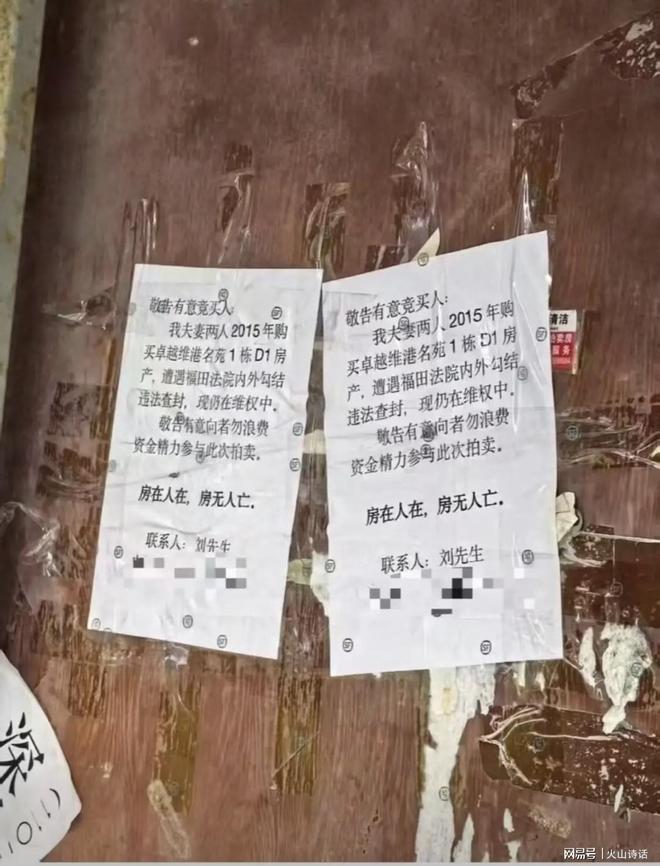 敬告有意竞买人：
我夫妻两人2015年购
买卓越维港名苑1栋D1房
产，遭遇福田法院内外勾结
违法查封，现仍在维权中。
敬告有意向者勿浪费
资金精力参与此次拍卖。
房在人在，房无人亡。
联系人：刘先生
敬告有意竞买人：
我夫妻两人2015年购
买卓越维港名苑1栋D1房
产，遭遇福田法院内外勾结
违法查封，现仍在维权中。
敬告有意向者勿浪费
资金精力参与此次拍卖。
房在人在，房无人亡。
联系人：刘先生
清洁
服务
深
网易号 | 火山诗话